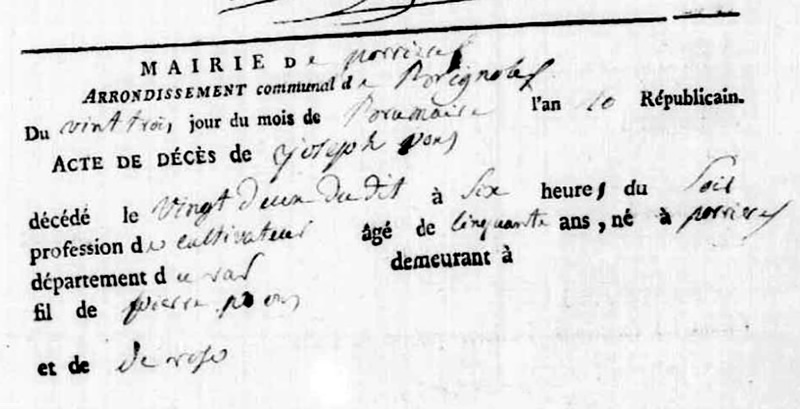 MAIRIE De porrieres
ARRONDISSEMENT communal de Brignoles
Du vint trois jour du mois de Brumaire l'an 10 Républicain.
ACTE DE DÉCÈS de Joseph pons
décédé le vingt deux du dit à six heures du soir
profession de cultivateur âgé de cinquante ans, né à porrieres
département du var demeurant à
fil de pierre pons
et de de